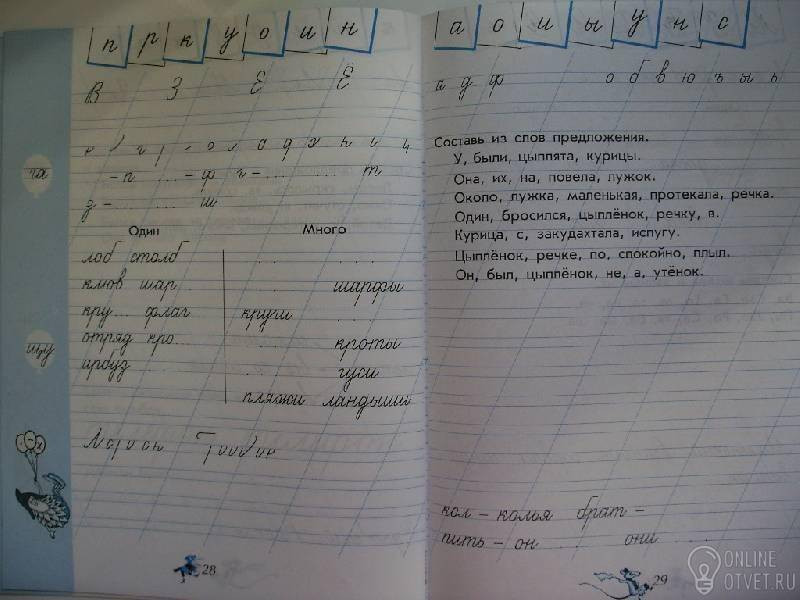 п р к у о и н
В З Е Ё
ча
- п - ф г - т
д - ш
Один Много
лоб столб
клюв шар шарфы
кру флаг круги
отряд кро кроты
арбуз гуси
пляжи ландыши
щу
28
а о и ы у н с
а д ф о б в ю ъ ы ь
Составь из слов предложения.
У, были, цыплята, курицы.
Она, их, на, повела, лужок.
Около, лужка, маленькая, протекала, речка.
Один, бросился, цыплёнок, речку, в.
Курица, с, закудахтала, испугу.
Цыплёнок, речке, по, спокойно, плыл.
Он, был, цыплёнок, не, а, утёнок.
кол - колья брат -
пить - он они
29
ONLINE
OTVET.RU